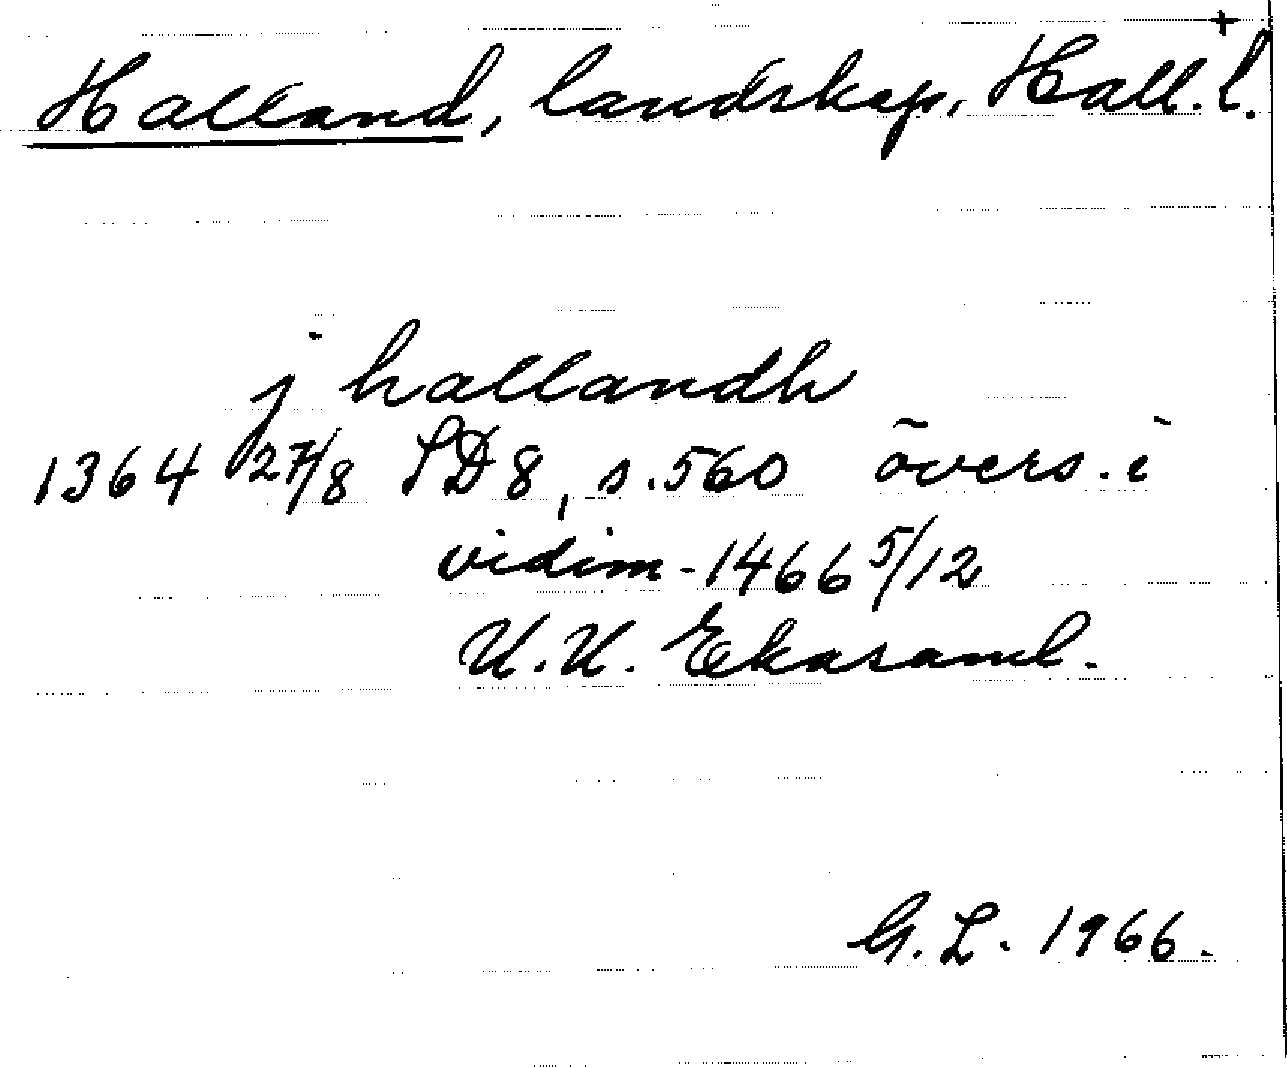 +
Halland, landskap, Hall. l.
j hallandh
1364 27/8 SD 8, s. 560 övers. i
vidim. 1466 5/12
U. U. Ekasaml.
G. L. 1966.